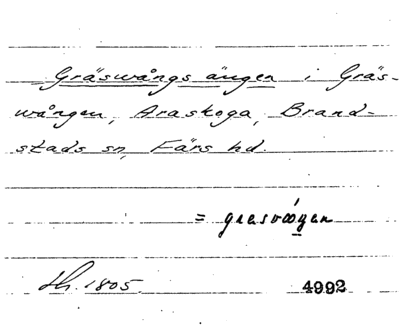 Gräswångs ängen i Gräs-
wången, Araskoga, Brand-
stads sn, Färs hd.
= gresvωŋen
Sh. 1805. 4992